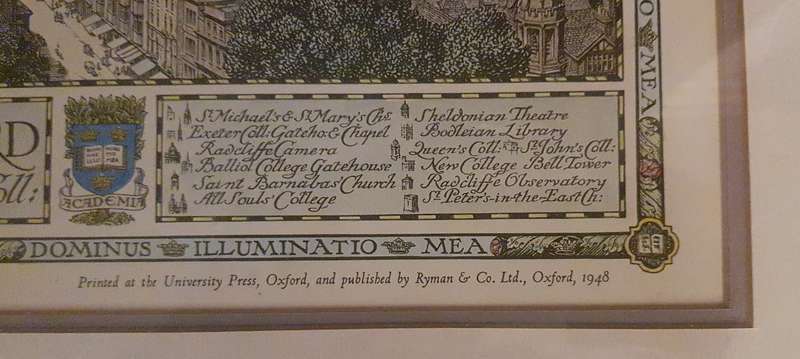 RD
oll:
ACADEMIA
St Michael's & St Mary's Chs
Exeter Coll: Gateho: & Chapel
Radcliffe Camera
Balliol College Gatehouse
Saint Barnabas' Church
All Souls' College
Sheldonian Theatre
Bodleian Library
Queen's Coll: St John's Coll:
New College Bell Tower
Radcliffe Observatory
St Peter's-in-the-East Ch:
O MEA
DOMINUS ILLUMINATIO MEA
Printed at the University Press, Oxford, and published by Ryman & Co. Ltd., Oxford, 1948